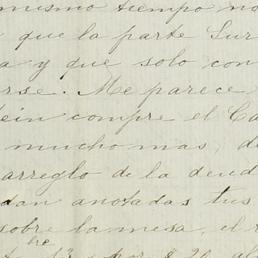 mismo tiempo no
que la parte Sur
a y que solo con
rse. Me parece
tein compre el Ca
mucho mas, de
arreglo de la deud
dan anotadas tus
sobre la mesa, el r